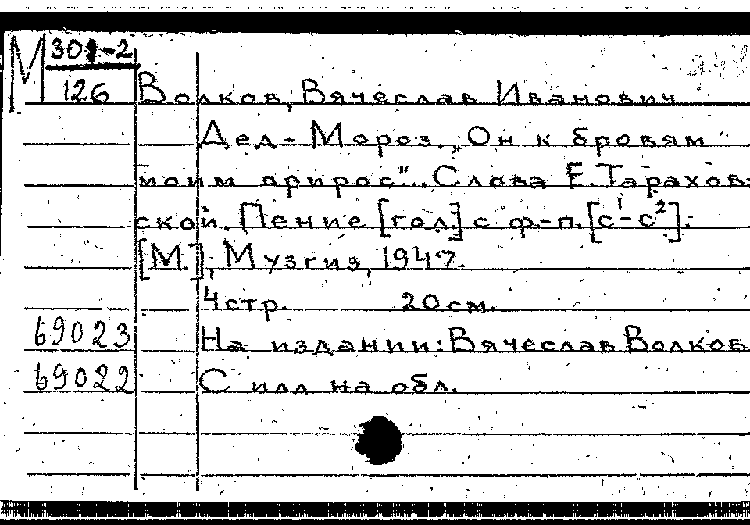 М 301-2
126 Волков, Вячеслав Иванович
Дел-Мороз. „Он к бровям
моим прирос"... Слова Е. Тарахов-
ской. Пение [гол.] с ф-п. [c¹-c²].
[М.], Музгиз, 1947.
4 стр. 20 см.
69023 На издании: Вячеслав Волков
69022 С илл на обл.